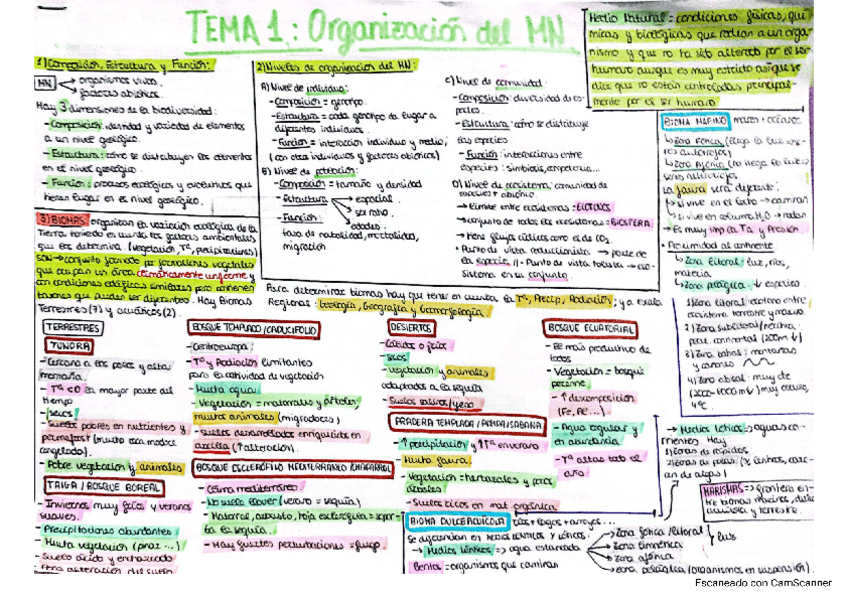 TEMA 1: Organización del MN
Medio Natural = condiciones físicas, quí
micas y biológicas que rodean a un orga-
nismo y que no ha sido alterado por el ser
humano aunque es muy estricto así que se
dice que no están controladas principal-
mente por el ser humano
1) Composición, Estructura y Función:
MN → organismos vivos.
→ factores abióticos
Hay 3 dimensiones de la biodiversidad:
- Composición: identidad y variedad de elementos
a un nivel geológico.
- Estructura: cómo se distribuyen los elementos
en el nivel geológico.
- Función: procesos ecológicos y evolutivos que
tienen lugar en el nivel geológico.
2) Niveles de organización del MN:
A) Nivel de individuo:
- Composición = genotipo.
- Estructura = cada genotipo da lugar a
diferentes individuos.
- Función = interacción individuo y medio,
(con otros individuos y factores abióticos)
B) Nivel de población:
- Composición = tamaño y densidad
- Estructura → espacial.
→ sex ratio.
→ edades.
- Función:
tasa de natalidad, mortalidad,
migración
C) Nivel de comunidad:
- Composición: diversidad de es-
pecies.
- Estructura: cómo se distribuye
las especies
- Función: interacciones entre
especies: simbiosis, competencia...
D) Nivel de ecosistema: comunidad de
especies + abiótico
→ Límite entre ecosistemas: ECOTONOS
→ conjunto de todos los ecosistemas = BIOSFERA
→ tiene flujos cíclicos como el de CO₂.
• Punto de vista reduccionista → parte de
la especie // • Punto de vista totalista → eco-
sistema en su conjunto
BIOMA MARINO mares + océanos
→ Zona Fótica (llega la luz →se-
res autótrofos)
→ Zona Afótica (no llega la luz →
seres heterótrofos
La fauna será diferente:
→ si vive en el lecho → caminan
→ si vive en columna H₂O → nadan
→ Es muy imp la Tª y Presión
• Proximidad al continente
→ Zona litoral: luz, ríos,
materia
→ Zona pelágica: ↓ especies.
1) Zona litoral: ecotono entre
ecosistema terrestre y marino.
2) Zona sublitoral/nerítica:
plat. continental (200m ↓)
3) Zona batial: montañas
y cañones
4) Zona abisal: muy de
(2000-4000m ↓) muy oscuro,
4ºC.
3) BIOMAS: organizan la variación ecológica de la
Tierra teniendo en cuenta los factores ambientales
que los determina (vegetación, Tª, precipitaciones)
SON → conjunto formado por formaciones vegetales
que ocupan un área climáticamente uniforme y
con condiciones edáficas similares pero contienen
taxones que pueden ser diferentes. Hay Biomas
Terrestres (7) y acuáticos (2).
Para determinar biomas hay que tener en cuenta la Tª, Precip, Radiación; y a escala
Regional: Geología, Geografía y Geomorfología.
TERRESTRES
TUNDRA
- Cercano a los polos y altas
montañas.
- Tª <0 la mayor parte del
tiempo
- Secos
- Suelos pobres en nutrientes y
permafrost (mucha roca madre
congelada).
- Pobre vegetación y animales
TAIGA / BOSQUE BOREAL
- Inviernos muy fríos y veranos
suaves.
- Precipitaciones abundantes
- Mucha vegetación (pinos ...)
- Suelo ácido y encharcado
BOSQUE TEMPLADO / CADUCIFOLIO
- Centroeuropa.
- Tª y Radiación limitantes
para la actividad de vegetación
- Mucha agua
- Vegetación = matorrales y árboles,
muchos animales (migradores)
- Suelos desarrollados enriquecidos en
arcilla (↑ alteración).
BOSQUE ESCLERÓFILO MEDITERRÁNEO / CHAPARRAL
- Clima mediterráneo.
- No suele llover (verano = sequía)
- Matorral, arbusto, hoja esclerófila = sopor-
ta la sequía...
- Hay fuertes perturbaciones = fuego.
DESIERTOS
- Cálidos o fríos
- Secos
- Vegetación y animales
adaptados a la sequía
- Suelos salinos/yeso
PRADERA TEMPLADA / PAMPA / SABANA
- ↑ precipitación y ↑Tª en verano
- Mucha fauna.
- Vegetación = herbazales y pocos
árboles
- Suelos ricos en mat. orgánica
BOSQUE ECUATORIAL
- Es más productivo de
todos
- Vegetación = bosque
perenne.
- ↑ descomposición
(Fe, Al...)
- Agua regular y
en abundancia
- Tª altas todo el
año
BIOMA DULCEACUÍCOLA ríos + lagos + arroyos...
Se diferencian en MEDIOS LÉNTICOS Y LÓTICOS:
→ Medios lénticos → agua estancada
→ Zona fótica / litoral
→ Zona limnética
→ Zona afótica
→ Zona pelágica (organismos en suspensión).
luz
Bentos = organismos que caminan
→ Medios lóticos → aguas co-
rrientes. Hay
1) Zonas de rápidos
2) Zonas de pozas
MARISMAS → frontera en-
tre biomas marinos, dulce
acuícola y terrestre.
Escaneado con CamScanner